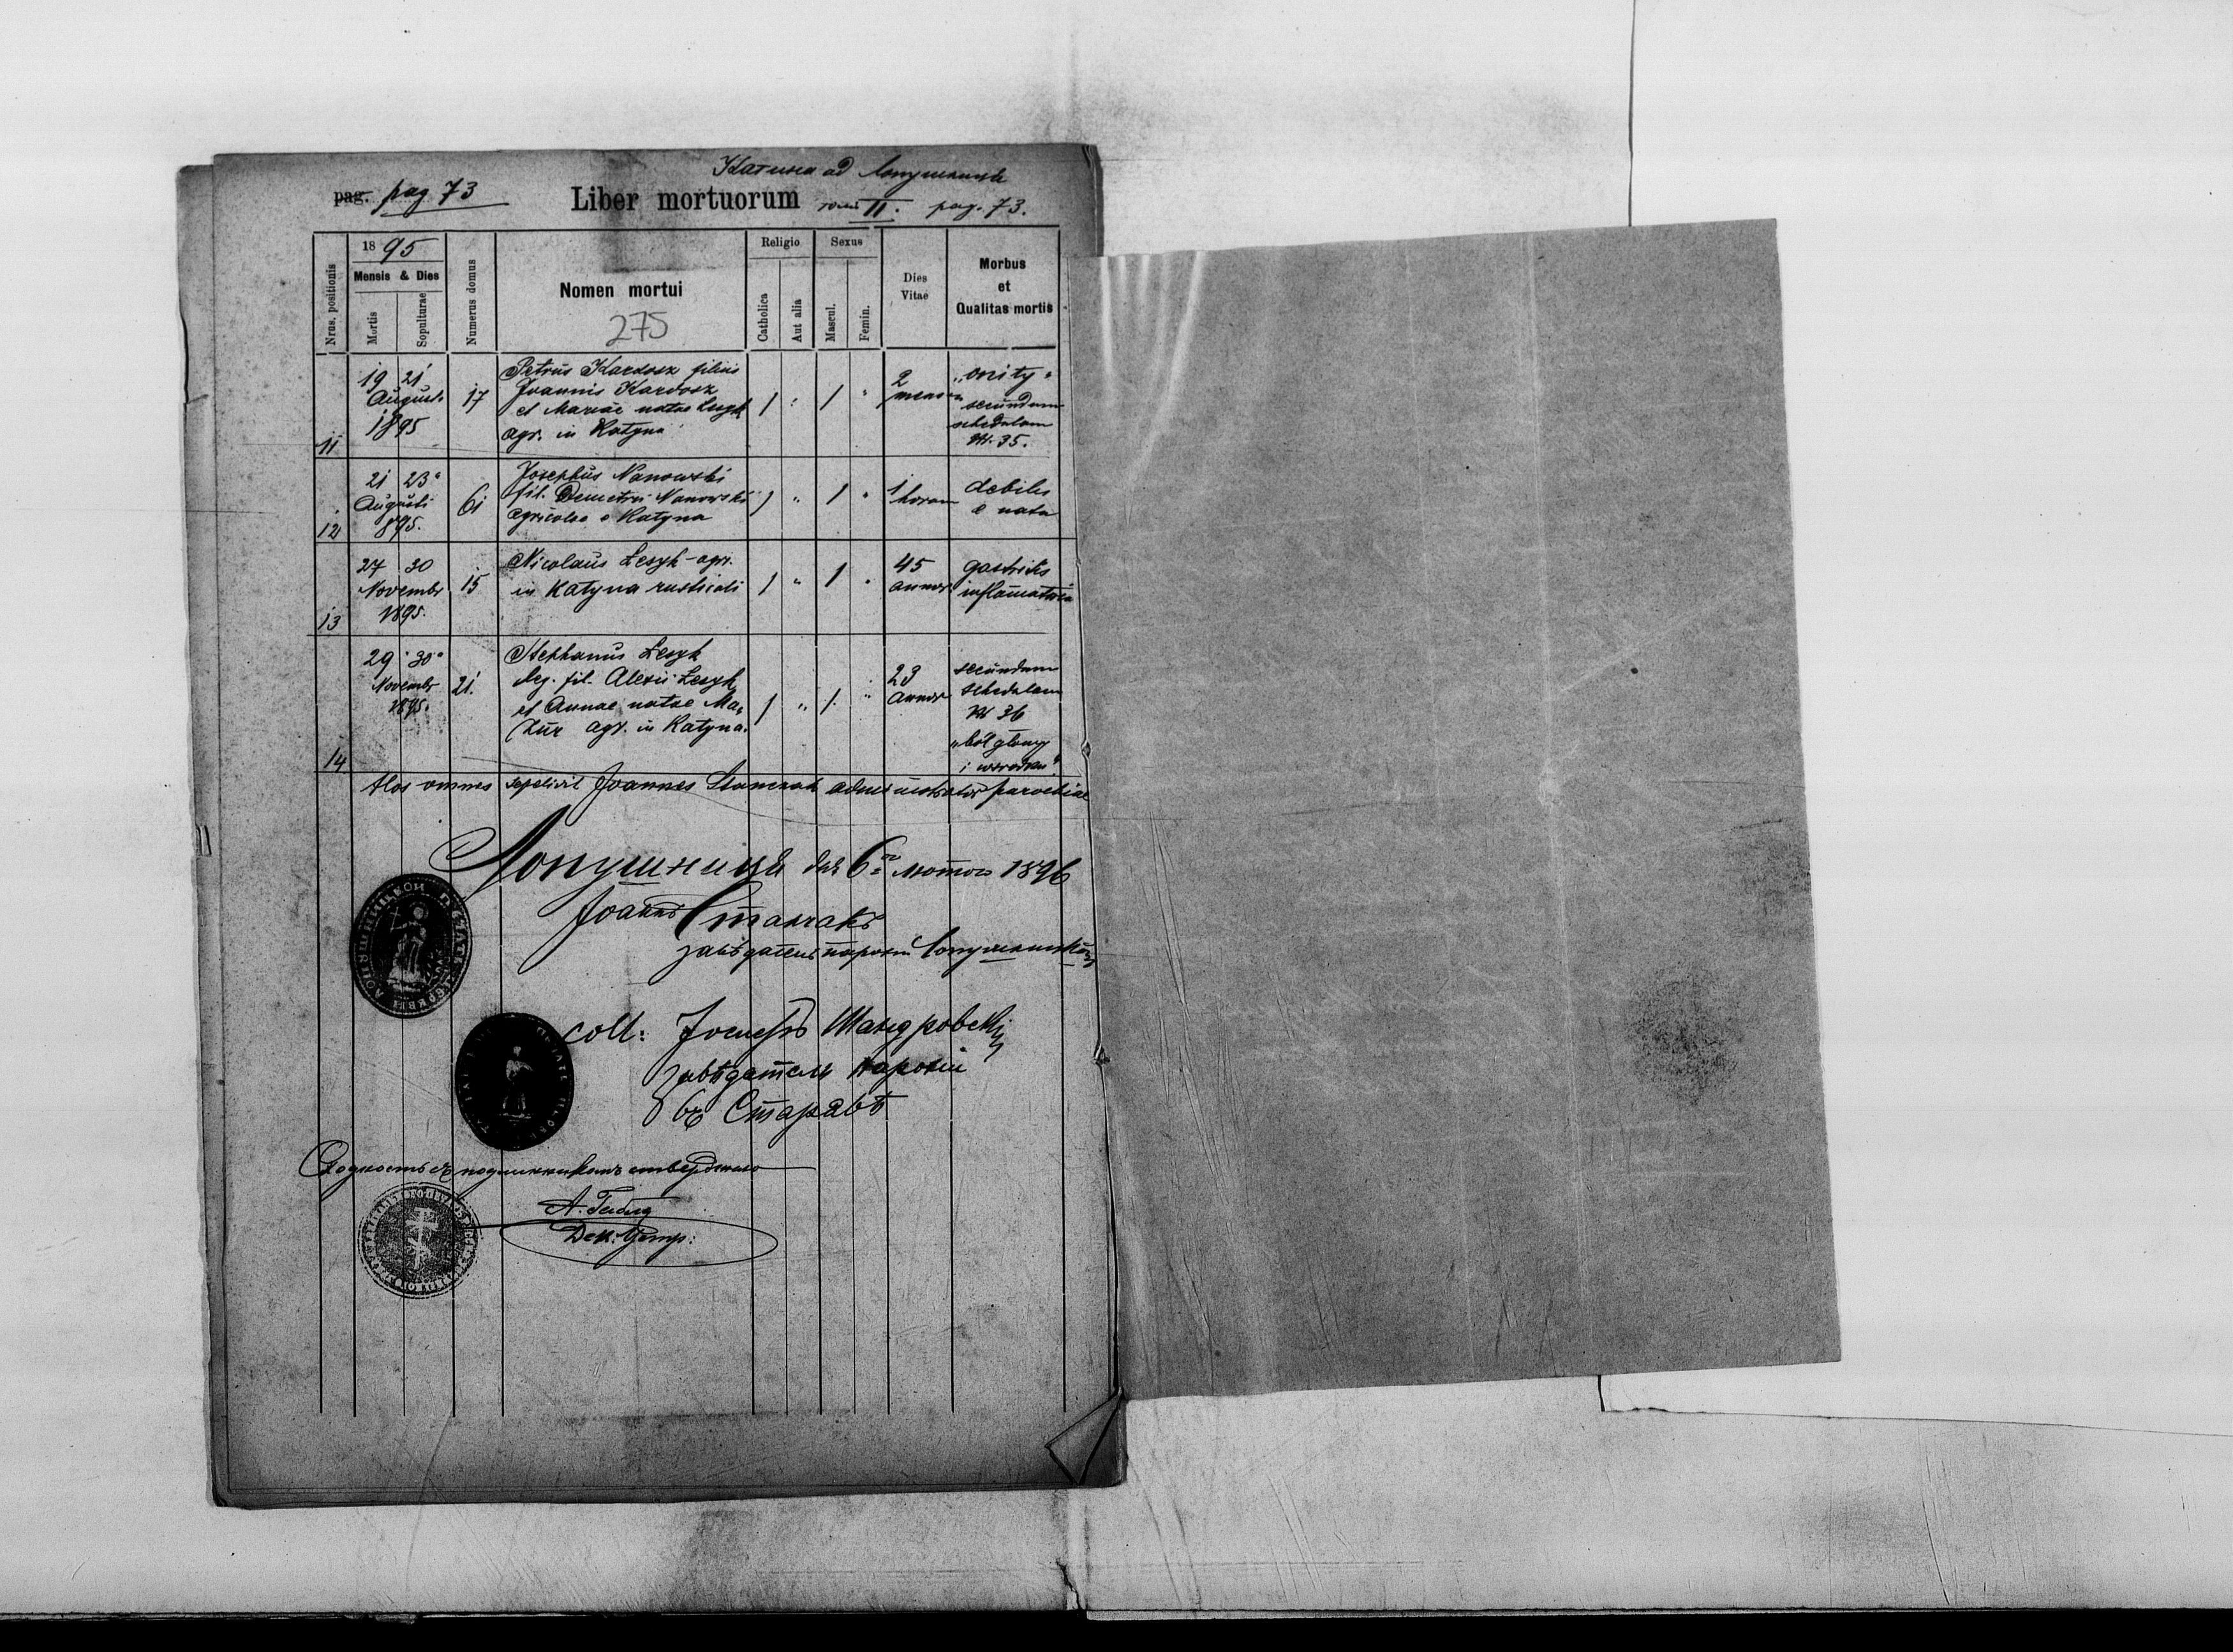 Катина ad Лопушниця
pag. pag 73 Liber mortuorum томъ II. pag. 73.
Nrus. positionis
1895
Mensis & Dies
Mortis
Sepulturae
Numerus domus
Nomen mortui
275
Religio
Catholica
Aut alia
Sexus
Mascul.
Femin.
Dies Vitae
Morbus
et
Qualitas mortis
11
19 21
Augusti
1895
17
Petrus Kardosz filius
Joannis Kardosz
et Mariae natae Leszk
agr. in Katyna
1 " 1 "
2
menses
secundum
schedulam
Nr. 35.
12
21 23
Augusti
895.
61
Josephus Nanowski
fil. Demetrii Nanowski
agricolae e Katyna
1 " 1 "
1
horam
debilis
e natu
13
27 30
Novembr
1895.
15
Nicolaus Leszk - agr.
in Katyna rusticali
1 " 1 "
45
annor
gastritis
inflamatoria
14
29 30
Novembr
1895.
21.
Stephanus Leszk
leg. fil. Alexii Leszk
et Annae natae Ma,
zur agr. in Katyna.
1 " 1. "
23
annor
secundum
schedulam
Nr 36
"ból głowy
Hos omnes sepelivit Joannes Stanczak administrator parochiae
Лопушниця дня 6го лютого 1896
Іоаннъ Станчакъ
завѣдатель парохіи Лопушницкои
coll: Іосифъ Шандровскій
завѣдатель парохіи
въ Старавѣ
Сходность съ подлинникомъ стверджаю